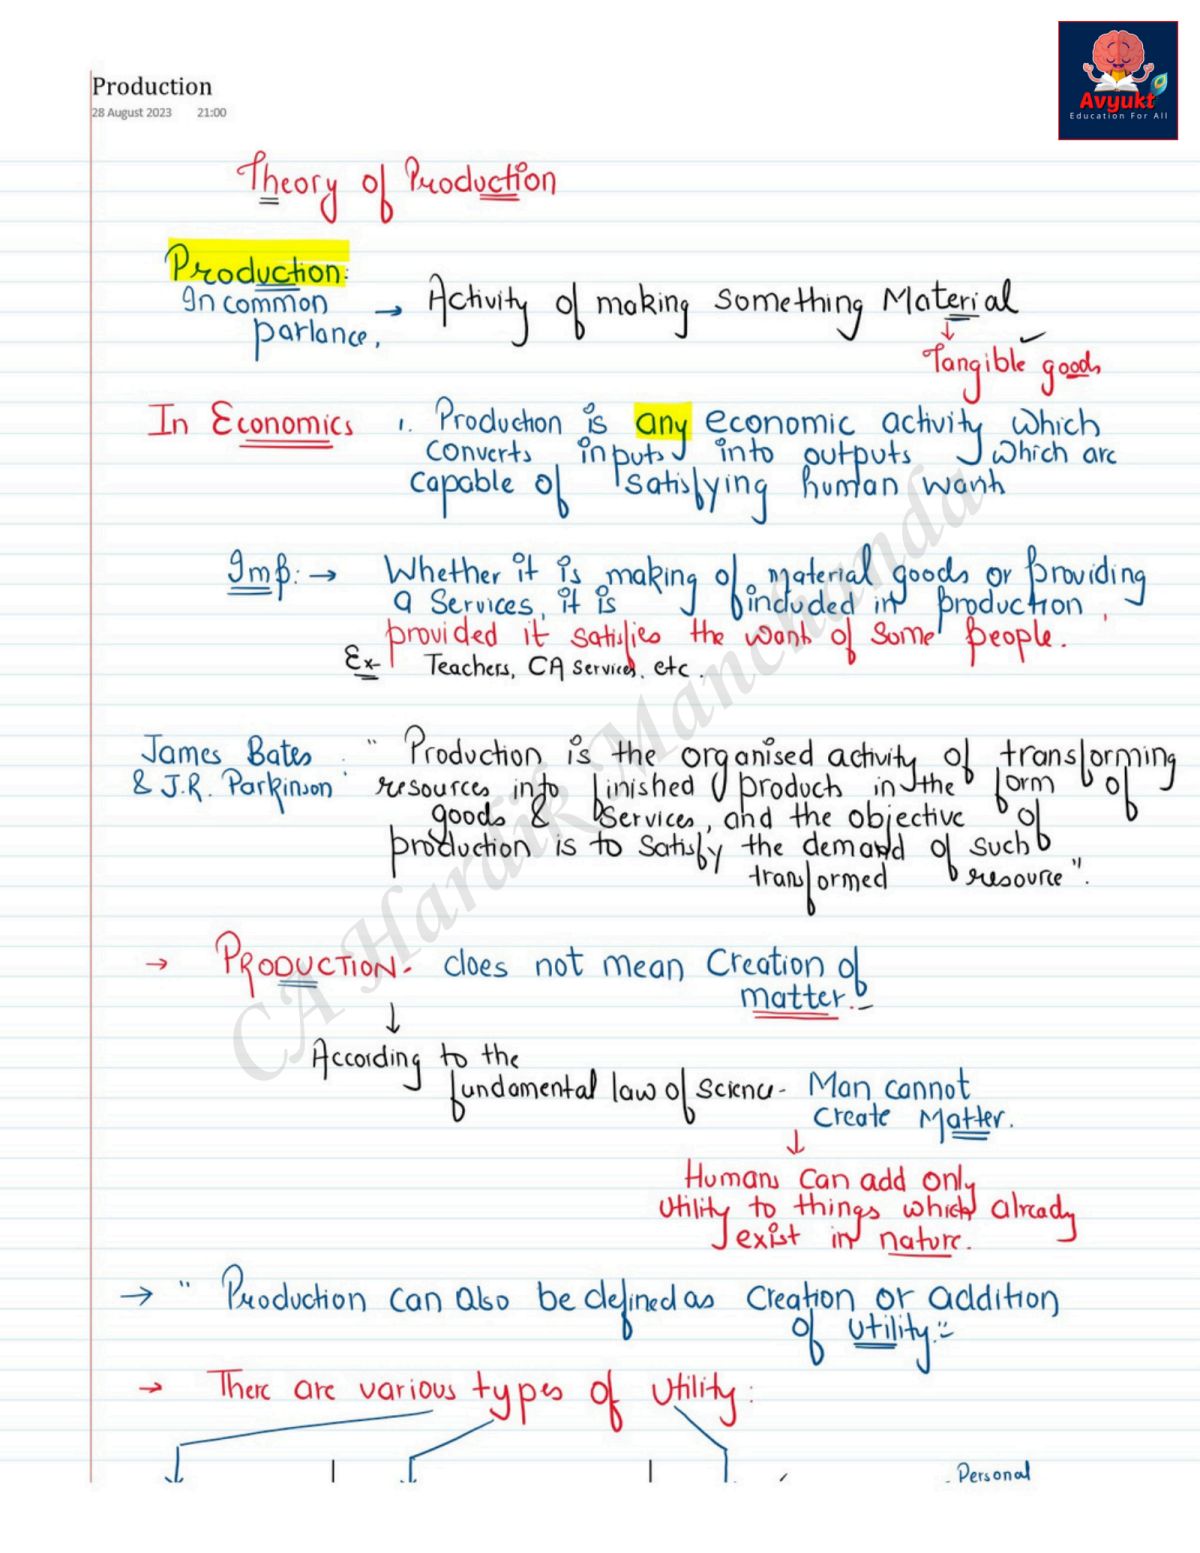 Avyukt
Education For All
Production
28 August 2023 21:00
Theory of Production
Production:
In common
parlance, → Activity of making something Material
↓
Tangible goods
In Economics 1. Production is any economic activity which
converts inputs into outputs which are
capable of satisfying human wants
Imp: → Whether it is making of material goods or providing
a services, it is included in production
provided it satisfies the want of some people.
Ex- Teachers, CA services, etc.
James Bates
& J.R. Parkinson : " Production is the organised activity of transforming
resources into finished products in the form of
goods & services, and the objective of
production is to satisfy the demand of such
transformed resource".
→ PRODUCTION - does not mean Creation of
matter.
↓
According to the
fundamental law of science - Man cannot
create Matter.
↓
Humans can add only
utility to things which already
exist in nature.
→ " Production can also be defined as creation or addition
of utility."
→ There are various types of utility:
Personal
CA Hardik Manchanda